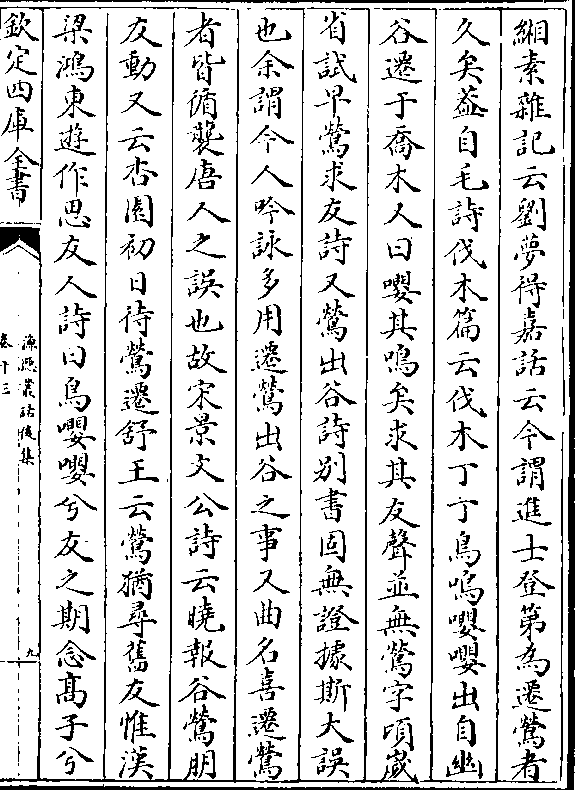 緗素雜記云劉夢得嘉話云今謂進士登第為遷鶯者
久矣葢自毛詩伐木篇云伐木丁丁鳥鳴嚶嚶出自幽
谷遷于喬木人曰嚶其鳴矣求其友聲並無鶯字項嵗
省試早鶯求友詩又鶯出谷詩别書固無證據斯大誤
也余謂今人吟詠多用遷鶯出谷之事又曲名喜遷鶯
者皆循襲唐人之誤也故宋景文公詩云曉報谷鶯朋
友動又云杏園初日待鶯遷舒王云鶯猶尋舊友惟漢
梁鴻東遊作思友人詩曰鳥嚶嚶兮友之期念髙子兮
欽定四庫全書
漁隱叢話後集
卷十三
九